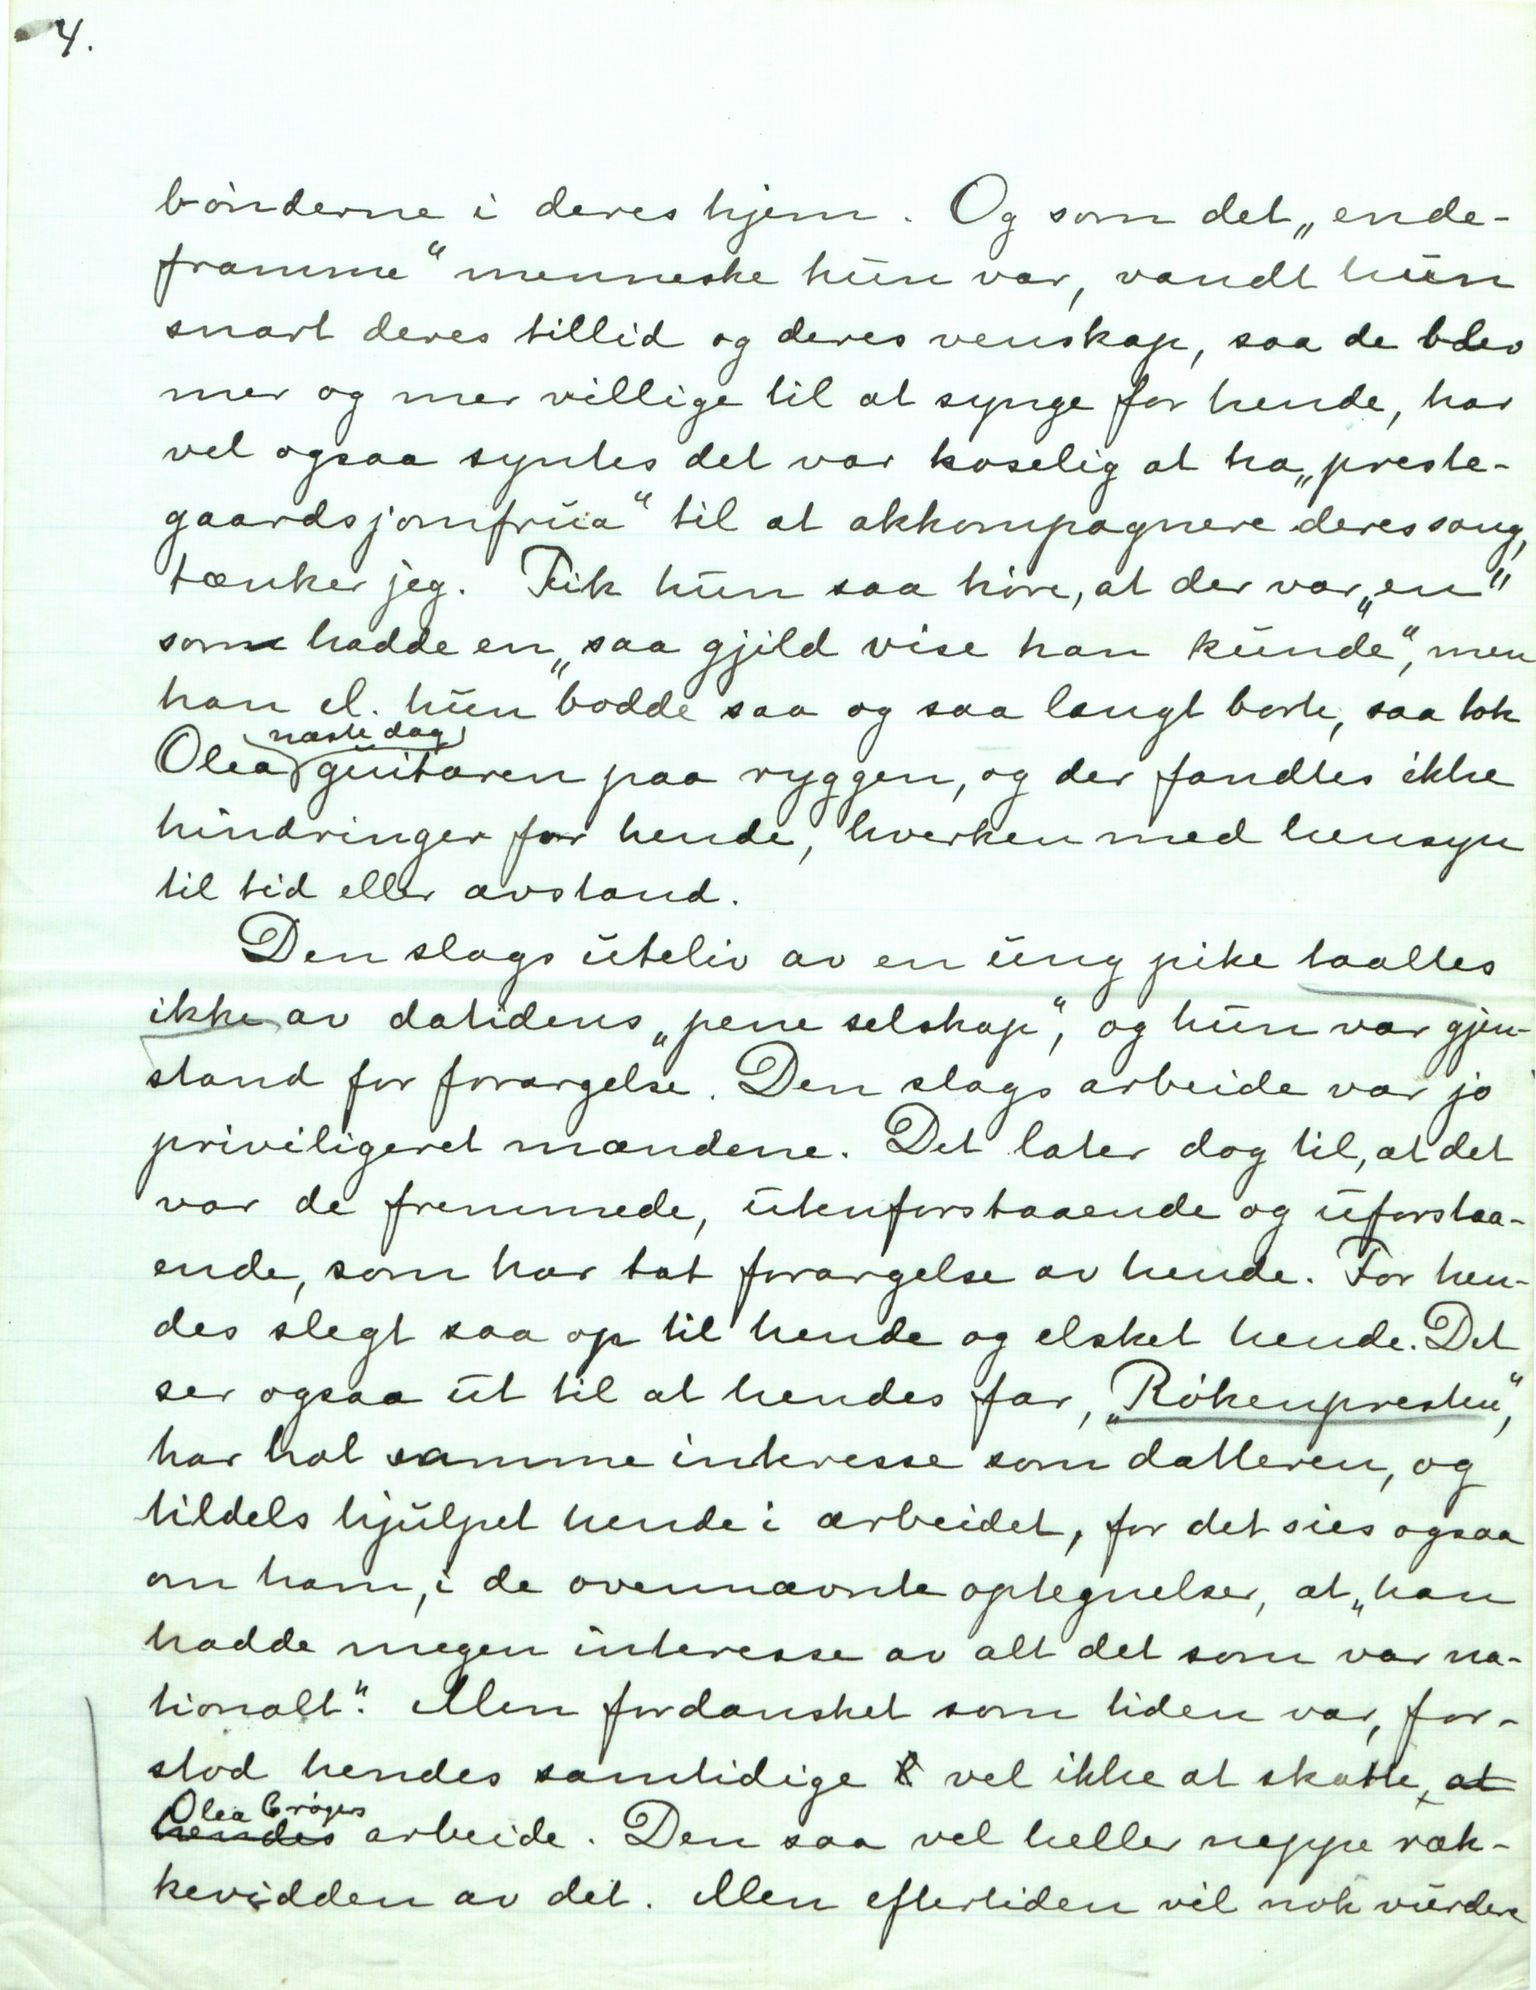 4.
bönderne i deres hjem. Og som det „ende-
framme“ menneske hun var, vandt hun
snart deres tillid og deres venskap, saa de blev
mer og mer villige til at synge for hende, har
vel ogsaa syntes det var koselig at ha „preste-
gaardsjomfrua“ til at akkompagnere deres sang,
tænker jeg. Fik hun saa höre, at der var „en“
som hadde en „saa gjild vise han kunde“, men
han el. hun bodde saa og saa langt borte, saa tok
næste dag
Olea guitaren paa ryggen, og der fandtes ikke
hindringer for hende, hverken med hensyn
til tid eller avstand.
Den slags uteliv av en ung pike taaltes
ikke av datidens „pene selskap“, og hun var gjen-
stand for forargelse. Den slags arbeide var jo
priviligeret mændene. Det later dog til, at det
var de fremmede, utenforstaaende og uforstaa-
ende, som har tat forargelse av hende. For hen-
des slegt saa op til hende og elsket hende. Det
ser ogsaa ut til at hendes far, „Rökenpresten“,
har hat samme interesse som datteren, og
tildels hjulpet hende i arbeidet, for det sies ogsaa
om ham, i de ovennævnte optegnelser, at „han
hadde megen interesse av alt det som var na-
tionalt“. Men fordansket som tiden var, for-
stod hendes samtidige vel ikke at skatte, at
Olea Crögers
hendes arbeide. Den saa vel heller neppe ræk-
kevidden av det. Men eftertiden vil nok vurdere